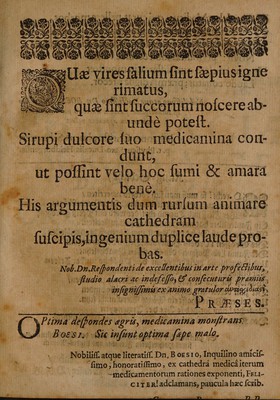 QUæ vires salium sint sæpius igne
rimatus,
quæ sint succorum noscere ab-
undè potest.
Sirupi dulcore suo medicamina con-
dunt,
ut possint velo hoc sumi & amara
benè.
His argumentis dum rursum animare
cathedram
suscipis, ingenium duplice laude pro-
bas.
Nob. Dn. Respondenti de excellentibus in arte profectibus,
studio alacri ac indefesso, & consecuturis præmiis
insignissimis ex animo gratulor
PRÆSES.
OPtima despondes agris, medicamina monstrans
BOESI. Sic insunt optima sæpe malo.
Nobiliss. atque literatiss. DN. BOESIO, Inquilino amicis-
simo, honoratissimo, ex cathedrâ medicâ iterum
medicamentorum rationes exponenti, FELI-
CITER! adclamans, paucula hæc scrib.